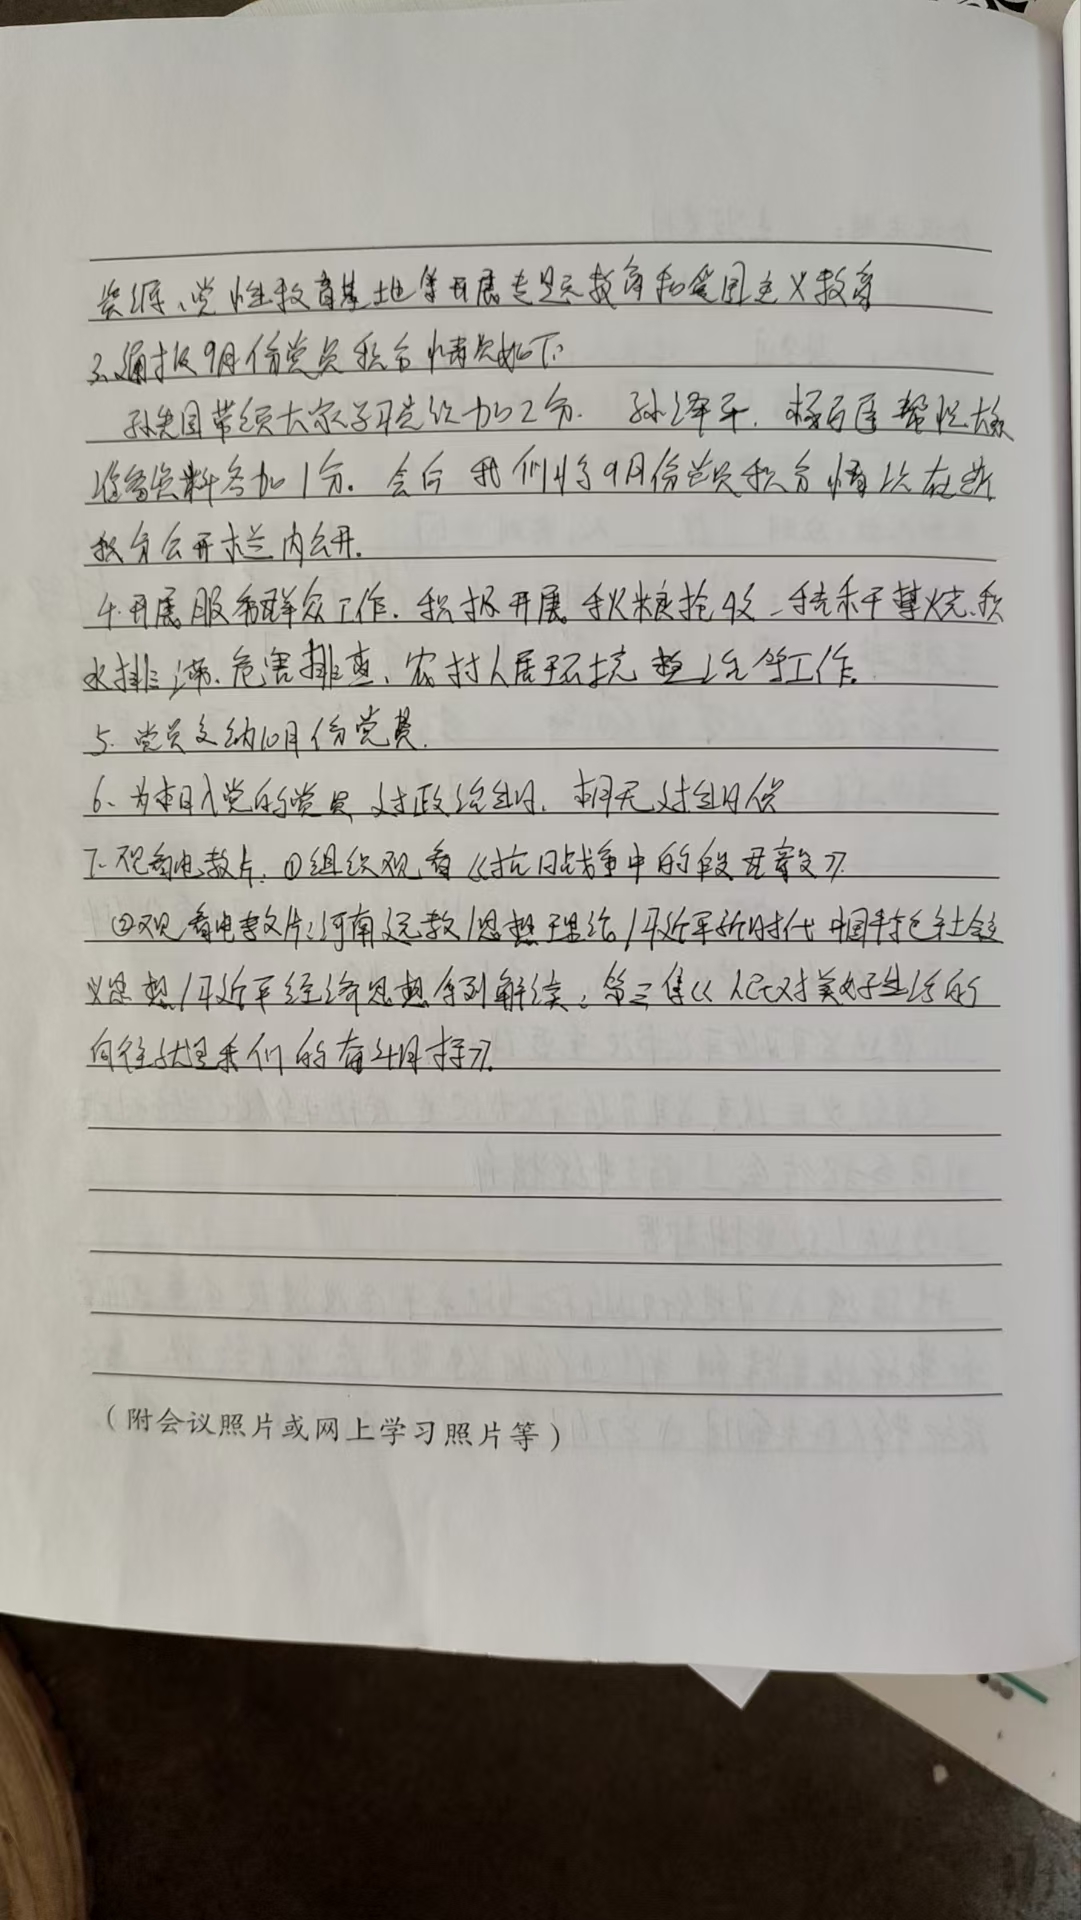 资源、党性教育基地等开展专题教育和爱国主义教育
3、通报9月份党员积分情况如下:
带领大家学习党纪加2分. 孙泽平. 帮忙大家
准备资料各加1分. 会后我们将9月份党员积分情况在
积分公开栏内公开.
4.开展服务群众工作. 积极开展秋粮抢收、秸秆禁烧、积
水排涝、危害排查、农村人居环境整治等工作.
5. 党员交纳10月份党费.
6、为本月入党的党员过政治生日. 本月无过生日人员
7、观看电教片. ①组织观看《抗日战争中的
②观看电教片:河南远教/思想理论/习近平新时代中国特色社会主
义思想/习近平经济思想系列解读:第三集《人民对美好生活的
向往就是我们的奋斗目标》.
(附会议照片或网上学习照片等)